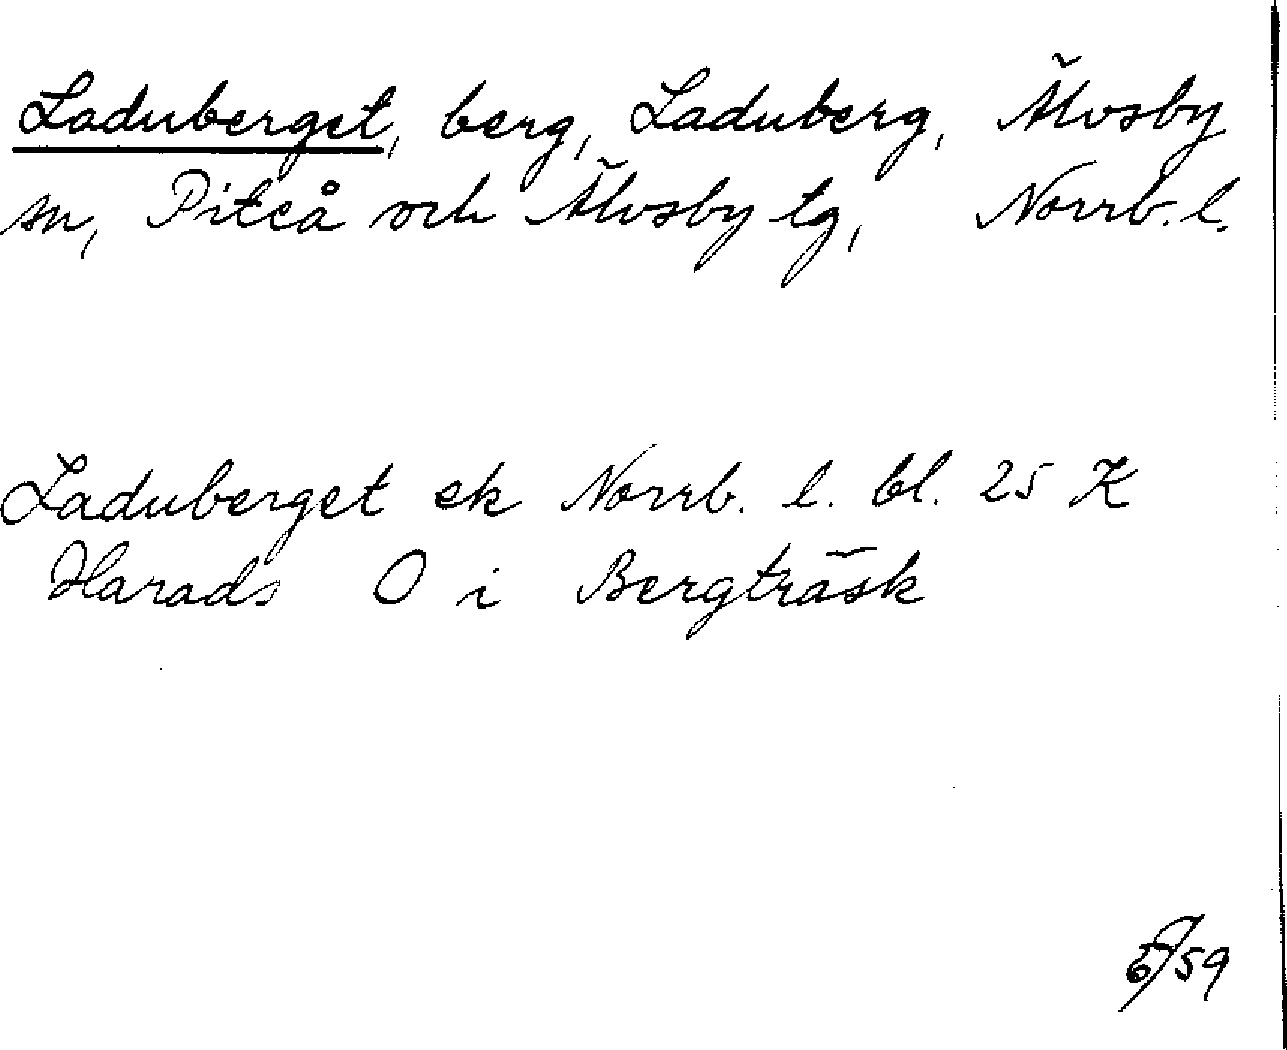 Laduberget, berg, Laduberg, Älvsby
sn, Piteå och Älvsby tg, Norrb. l.
Laduberget ek Norrb. l. bl. 25 K
Harads O i Bergträsk